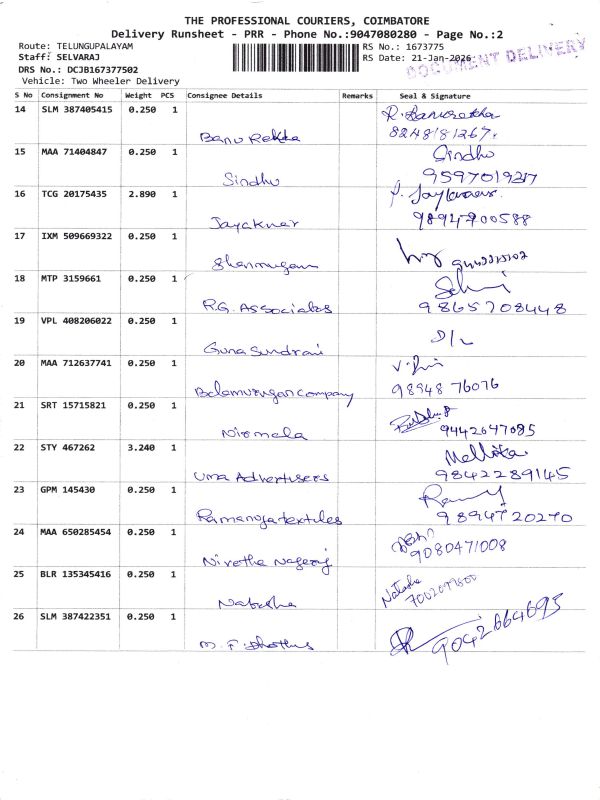 THE PROFESSIONAL COURIERS, COIMBATORE
Delivery Runsheet - PRR - Phone No.:9047080280 - Page No.:2
Route: TELUNGUPALAYAM
RS No.: 1673775
Staff: SELVARAJ
RS Date: 21-Jan-2026
DOCUMENT DELIVERY
DRS No.: DCJB167377502
Vehicle: Two Wheeler Delivery
S No Consignment No Weight PCS Consignee Details Remarks Seal & Signature
14 SLM 387405415 0.250 1
Banu Rekha
8248181267
15 MAA 71404847 0.250 1 Sindhu
Sindhu
16 TCG 20175435 2.890 1
9894700588
17 IXM 509669322 0.250 1
Shanmugam
18 MTP 3159661 0.250 1
R.G. Associates 9865708448
19 VPL 408206022 0.250 1 D/L
Guna Sundrai
20 MAA 712637741 0.250 1
Balamurugan Company 98948 76076
21 SRT 15715821 0.250 1
Nirmala 9442647085
22 STY 467262 3.240 1 Mallika
Uma Advertisers 9842289145
23 GPM 145430 0.250 1
Ramanuja textiles 9894720270
24 MAA 650285454 0.250 1
Nivetha Nagaraj 9080471008
25 BLR 135345416 0.250 1 Natasha
Natasha
26 SLM 387422351 0.250 1
9042664695